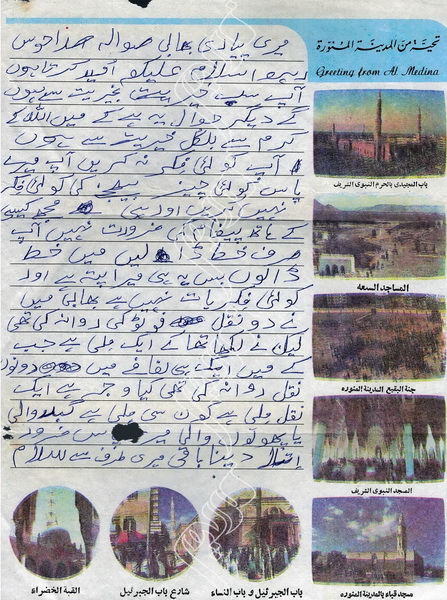 تحية من المدينة المنورة
Greeting from Al Medina
میری پیاری بھابی صوالہ
السلام علیکم
آپ سب خیریت
کے دیگر احوال یہ ہے کے میں اللہ کے
کرم سے بلکل خیریت سے ہوں
آپ کوئی فکر نہ کریں آپ میرے
پاس کوئی چیز کی کوئی فکر
نہیں کریں اور
کے ہاتھ کی ضرورت نہیں آپ
صرف خط میں خط
ڈالوں بس یہ ہی میرا پتہ ہے اور
کوئی فکر بات نہیں ہے بھابی میں
نے دو نقل فوٹو کی روانہ کی تھی
لیکن نے لکھا تھا کے ایک ملی ہے جب
کے میں ایک ہی لفافے میں دونوں
نقل روانہ کی تھی کیا وجہ ہے ایک
نقل ملی ہے کون سی ملی ہے والی
یا پھولوں والی ضرور
دینا باقی میری طرف سے سلام
باب المجيدي بالحرم النبوي الشريف
المساجد السبعه
جنة البقيع المدينة المنوره
المسجد النبوي الشريف
مسجد قباء بالمدينة المنوره
القبة الخضراء
شارع باب الجبر ليل
باب الجبر ليل و باب النساء